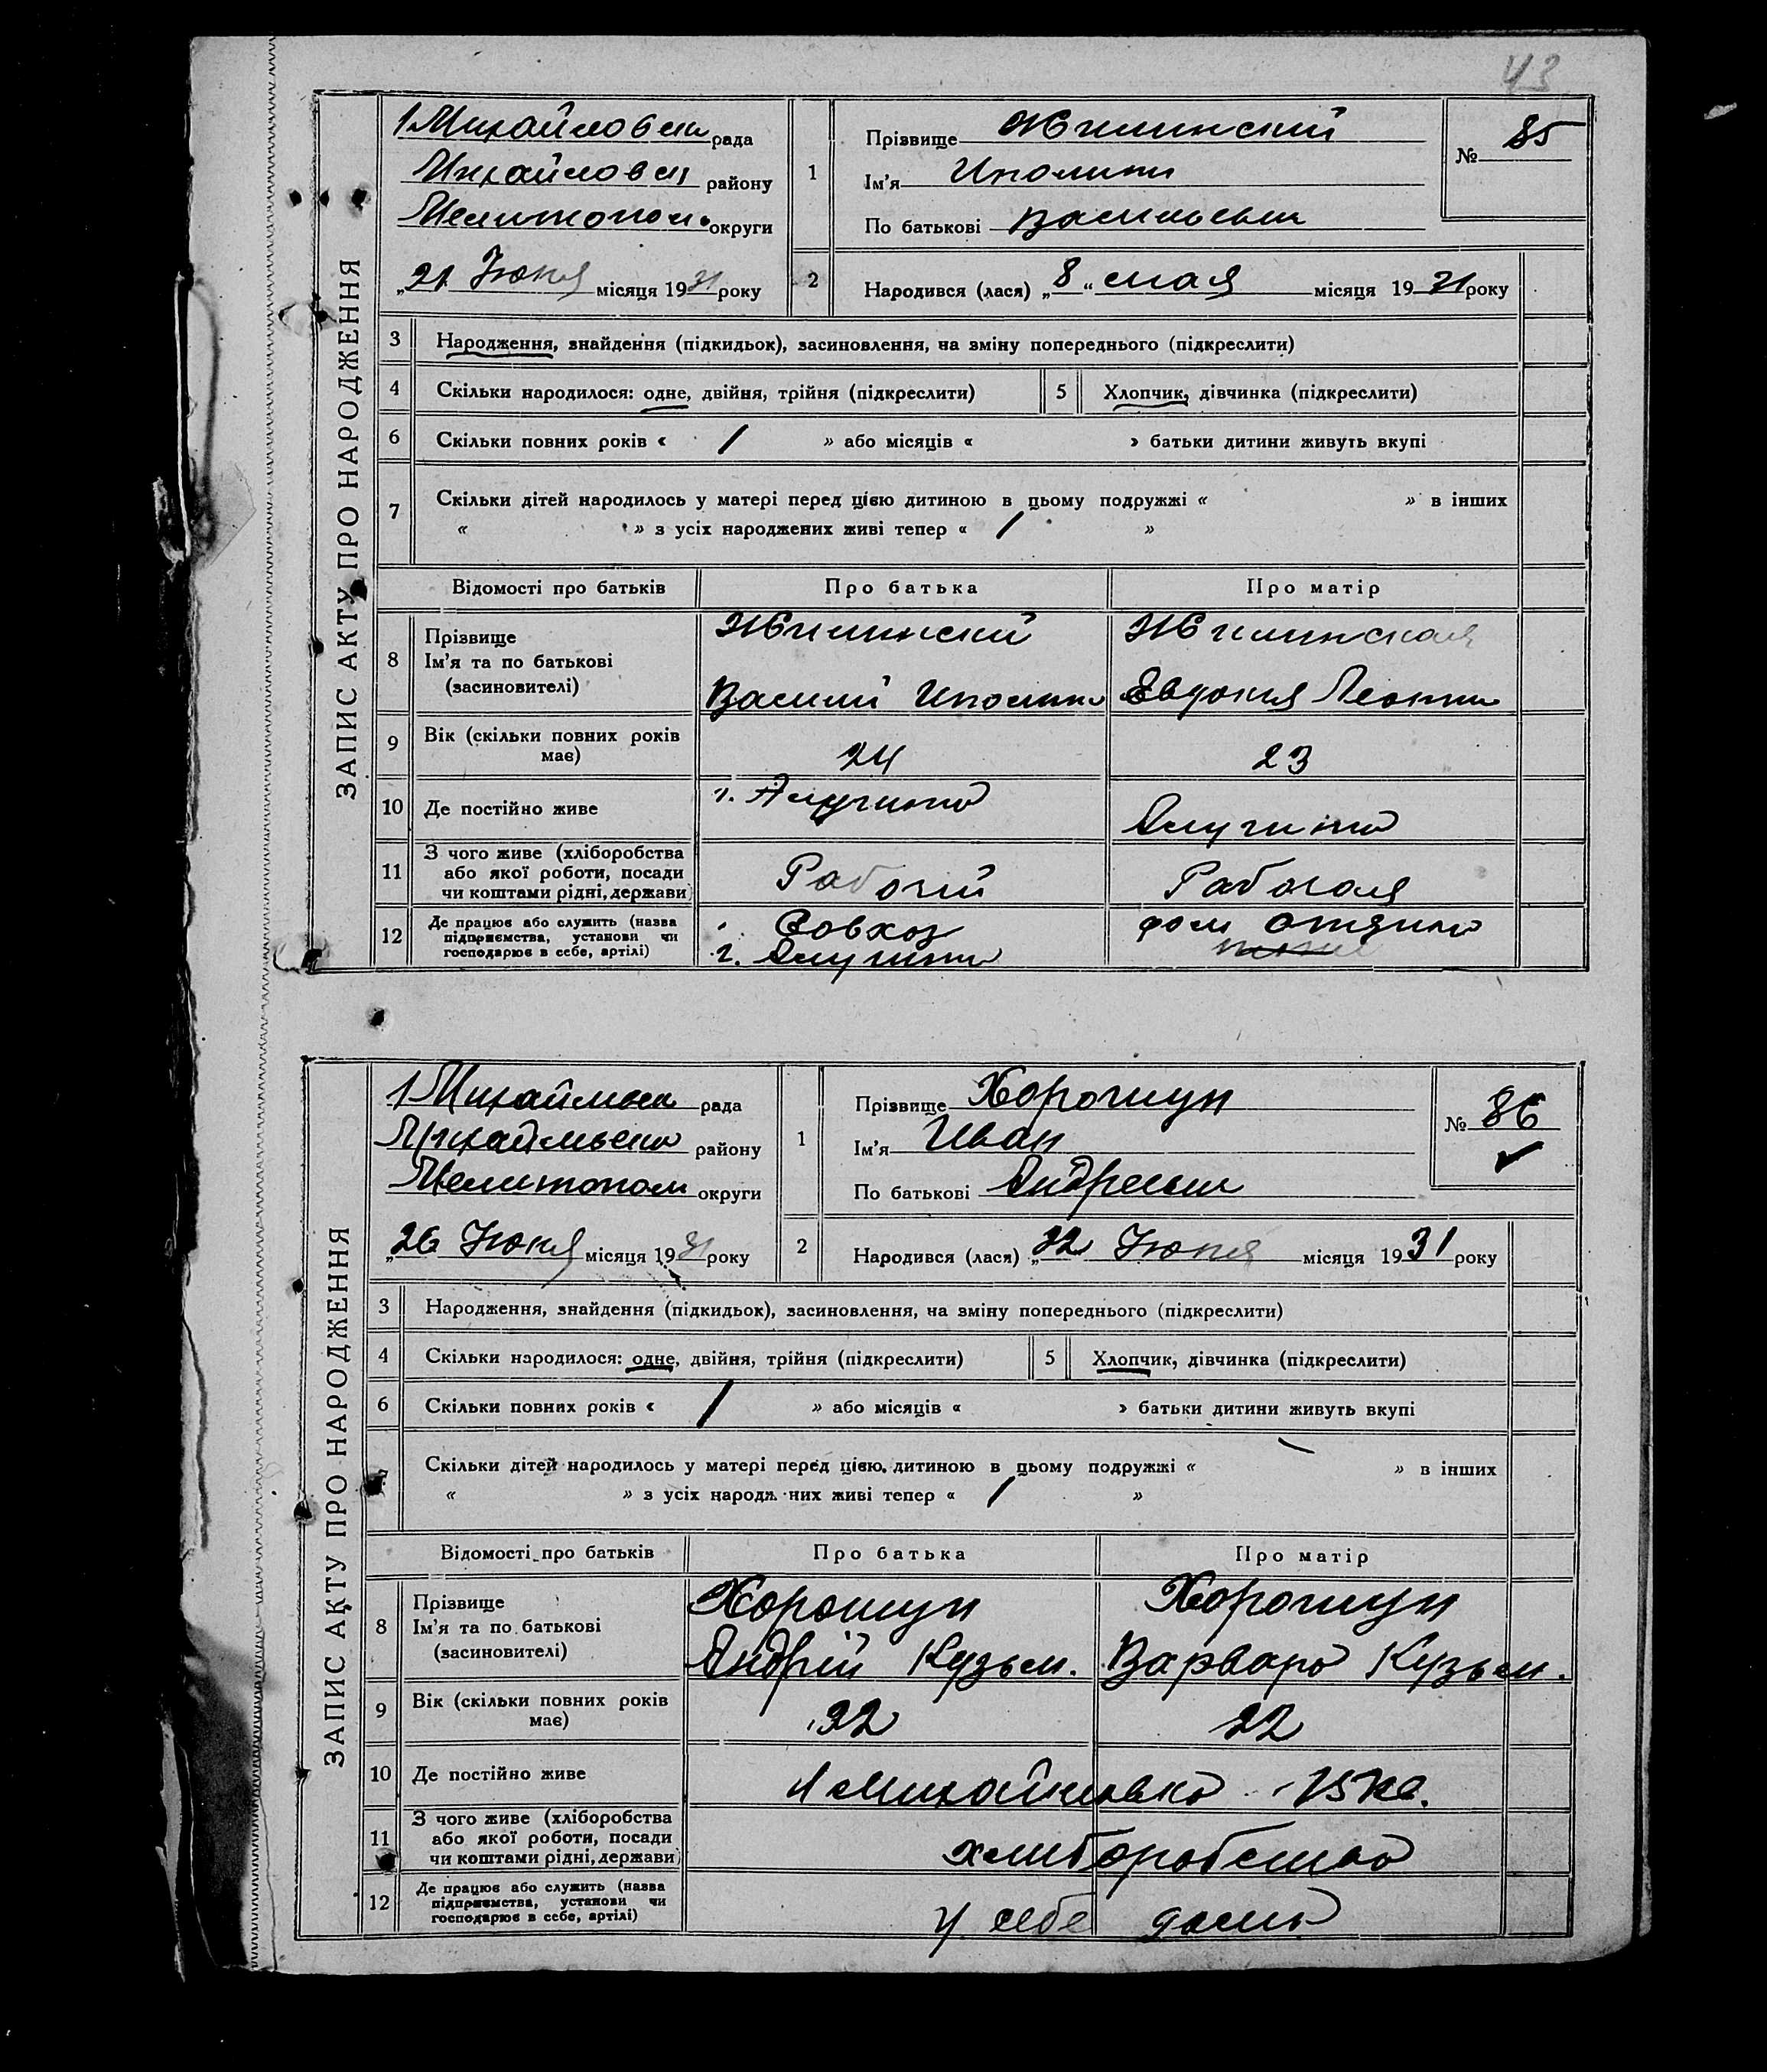 43
ЗАПИС АКТУ ПРО НАРОДЖЕННЯ
1 Михайловск рада
Михайловск району
Мелитопол. округи
„21 Июня місяця 1931 року
1
Прізвище Жилинский
Ім'я Иполит
По батькові Васильевич
№ 85
2
Народився (лася) „8“ мая місяця 1931 року
3 Народження, знайдення (підкидьок), засиновлення, на зміну попереднього (підкреслити)
4 Скільки народилося: одне, двійня, трійня (підкреслити)
5 Хлопчик, дівчинка (підкреслити)
6 Скільки повних років « 1 » або місяців « » батьки дитини живуть вкупі
7 Скільки дітей народилось у матері перед цією дитиною в цьому подружжі « » в інших
« » з усіх народжених живі тепер « 1 »
Відомості про батьків Про батька Про матір
8 Прізвище Жилинский Жилинская
Ім'я та по батькові
(засиновителі) Василий Иполит Евдокия Леонти
9 Вік (скільки повних років
має) 24 23
10 Де постійно живе г. Алушта Алушта
11 З чого живе (хліборобства
або якої роботи, посади
чи коштами рідні, держави) Рабочий Рабочая
12 Де працює або служить (назва
підприємства, установи чи
господарює в себе, артілі) Совхоз
г. Алушта
дом
ЗАПИС АКТУ ПРО НАРОДЖЕННЯ
1 Михайльвск рада
Михайльвско району
Мелитопол округи
„26 Июня місяця 1931 року
1
Прізвище Хорошун
Ім'я Иван
По батькові Андреевич
№ 86
2
Народився (лася) „22 Июня місяця 1931 року
3 Народження, знайдення (підкидьок), засиновлення, на зміну попереднього (підкреслити)
4 Скільки народилося: одне, двійня, трійня (підкреслити)
5 Хлопчик, дівчинка (підкреслити)
6 Скільки повних років « 1 » або місяців « » батьки дитини живуть вкупі
7 Скільки дітей народилось у матері перед цією дитиною в цьому подружжі « – » в інших
« » з усіх народжених живі тепер « 1 »
Відомості про батьків Про батька Про матір
8 Прізвище Хорошун Хорошун
Ім'я та по батькові
(засиновителі) Андрій Кузьм. Варвара Кузьм.
9 Вік (скільки повних років
має) 22 22
10 Де постійно живе 1 Михайловка 15 кв.
11 З чого живе (хліборобства
або якої роботи, посади
чи коштами рідні, держави) хлиборобство
12 Де працює або служить (назва
підприємства, установи чи
господарює в себе, артілі) у себе дома